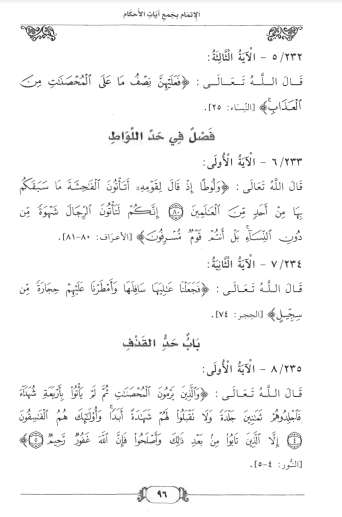 الإتمام بجمع آيات الأحكام
٥/٢٣٢ - الْآيَةُ الثَّالِثَةُ:
قَالَ اللَّهُ تَعَالَى: ﴿فَعَلَيْهِنَّ نِصْفُ مَا عَلَى الْمُحْصَنَاتِ مِنَ
الْعَذَابِ﴾ [النِّسَاء: ٢٥].
فَصْلٌ فِي حَدِّ اللِّوَاطِ
٦/٢٣٣ - الْآيَةُ الْأُولَى:
قَالَ اللَّهُ تَعَالَى: ﴿وَلُوطًا إِذْ قَالَ لِقَوْمِهِ أَتَأْتُونَ الْفَاحِشَةَ مَا سَبَقَكُمْ
بِهَا مِنْ أَحَدٍ مِّنَ الْعَالَمِينَ ۝٨٠ إِنَّكُمْ لَتَأْتُونَ الرِّجَالَ شَهْوَةً مِّن
دُونِ النِّسَاءِ بَلْ أَنتُمْ قَوْمٌ مُّسْرِفُونَ﴾ [الأعراف: ٨٠-٨١].
٧/٢٣٤ - الْآيَةُ الثَّانِيَةُ:
قَالَ اللَّهُ تَعَالَى: ﴿فَجَعَلْنَا عَالِيَهَا سَافِلَهَا وَأَمْطَرْنَا عَلَيْهِمْ حِجَارَةً مِّن
سِجِّيلٍ﴾ [الحجر: ٧٤].
بَابُ حَدِّ القَذْفِ
٨/٢٣٥ - الْآيَةُ الْأُولَى:
قَالَ اللَّهُ تَعَالَى: ﴿وَالَّذِينَ يَرْمُونَ الْمُحْصَنَاتِ ثُمَّ لَمْ يَأْتُوا بِأَرْبَعَةِ شُهَدَاءَ
فَاجْلِدُوهُمْ ثَمَانِينَ جَلْدَةً وَلَا تَقْبَلُوا لَهُمْ شَهَادَةً أَبَدًا وَأُولَئِكَ هُمُ الْفَاسِقُونَ
۝٤ إِلَّا الَّذِينَ تَابُوا مِنْ بَعْدِ ذَلِكَ وَأَصْلَحُوا فَإِنَّ اللَّهَ غَفُورٌ رَّحِيمٌ ۝٥﴾
[النُّور: ٤-٥].
٩٦